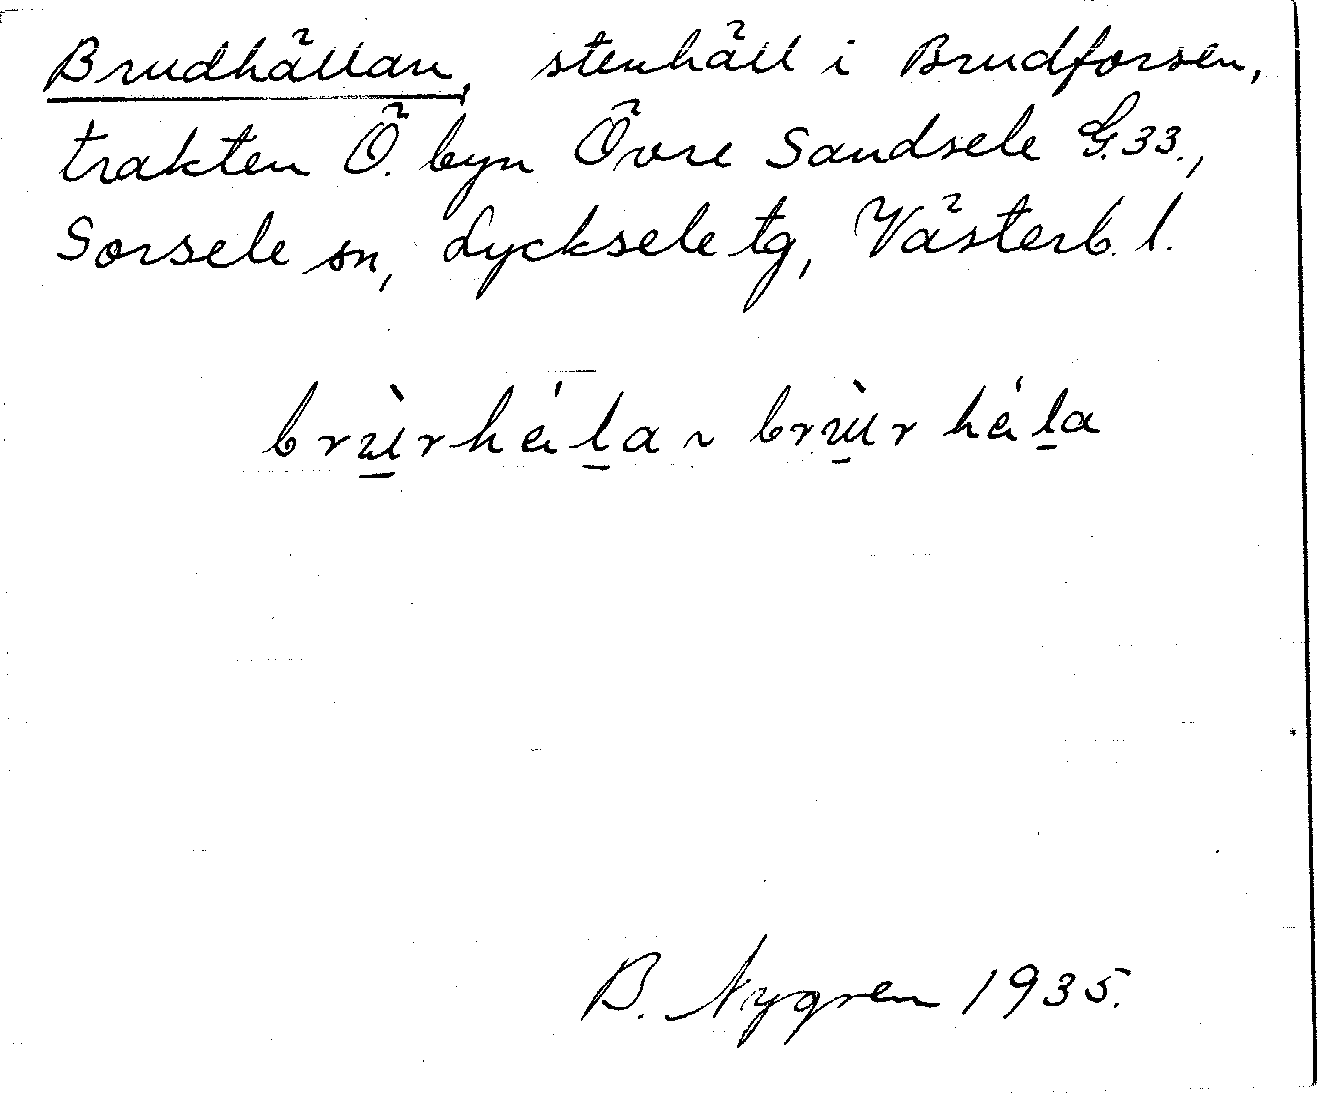 Brudhällan, stenhäll i Brudforsen,
trakten Ö. byn Övre Sandsele G.33.,
Sorsele sn, Lycksele tg, Västerb. l.
brù̱rháḻa ~ brù̱r háḻa
B. Nygren 1935.